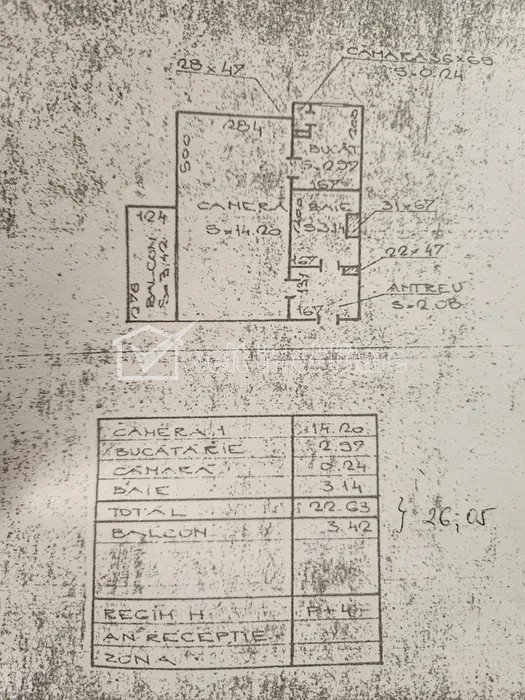 CAMARA 36×68
S=0.24
28×47
284
500
200
BUCAT
S=2.97
167
CAMERA
S=14.20
200
BAIE
S=3.14
31×67
124
BALCON
S=3.42
276
22×47
167
131
ANTREU
S=2.08
167
CAMERA 1 14.20
BUCATARIE 2.97
CAMARA 0.24
BAIE 3.14
TOTAL 22.63
BALCON 3.42
} 26,05
REGIM H P+4
AN RECEPTIE
ZONA